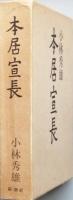 本居宣長
小林秀雄
小林秀雄
本居宣長